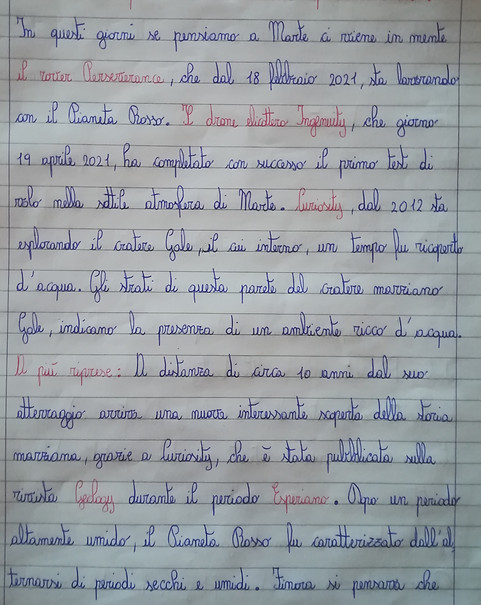 In questi giorni se pensiamo a Marte ci viene in mente
il rover Perseverance, che dal 18 febbraio 2021, sta lavorando
con il Pianeta Rosso. Il drone elicottero Ingenuity, che giorno
19 aprile 2021, ha completato con successo il primo test di
volo nella sottile atmosfera di Marte. Curiosity, dal 2012 sta
esplorando il cratere Gale, il cui interno, un tempo fu ricoperto
d'acqua. Gli strati di questa parete del cratere marziano
Gale, indicano la presenza di un ambiente ricco d'acqua.
A più riprese: A distanza di circa 10 anni dal suo
atterraggio arriva una nuova interessante scoperta della storia
marziana, grazie a Curiosity, che è stata pubblicata sulla
rivista Geology durante il periodo Esperiano. Dopo un periodo
altamente umido, il Pianeta Rosso fu caratterizzato dall'al
ternarsi di periodi secchi e umidi. Finora si pensava che